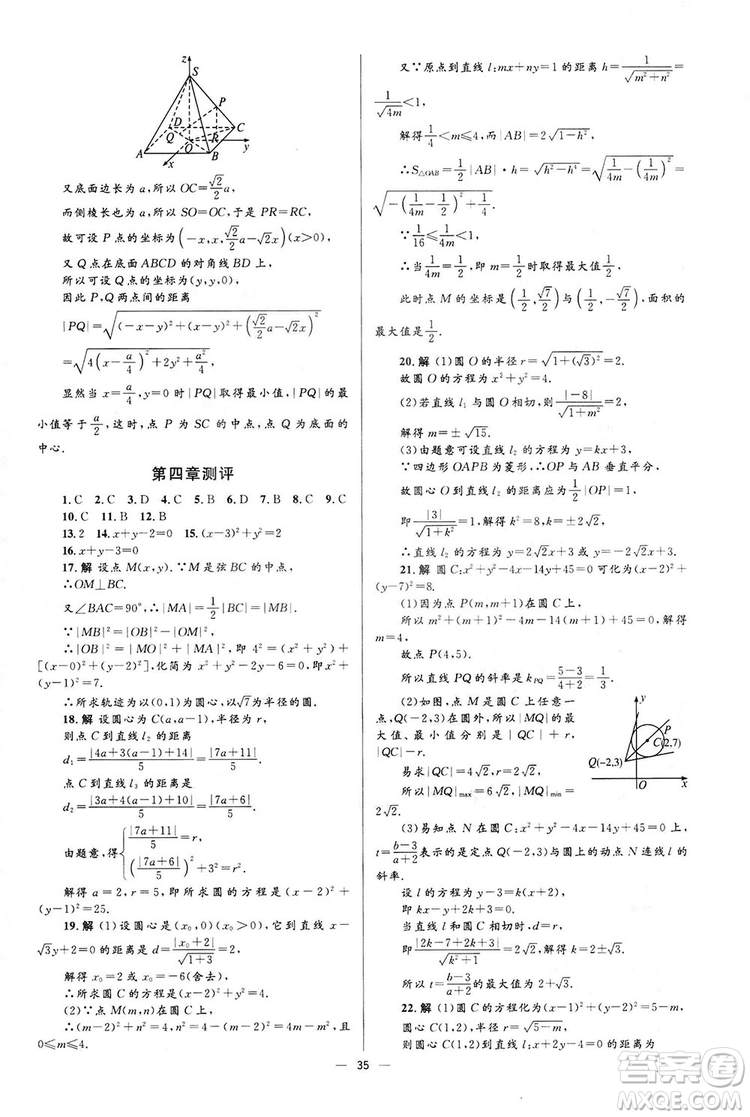 z
S
P
D
C
Q
R
O
y
A
B
x
又底面边长为a,所以OC=√2/2 a,
而侧棱长也为a,所以SO=OC,于是PR=RC,
故可设P点的坐标为(-x,x,√2/2 a-√2x)(x>0),
又Q点在底面ABCD的对角线BD上,
所以可设Q点的坐标为(y,y,0),
因此P,Q两点间的距离
|PQ|=√((-x-y)²+(x-y)²+(√2/2 a-√2x)²)
=√(4(x-a/4)²+2y²+a²/4),
显然当x=a/4,y=0时|PQ|取得最小值,|PQ|的最
小值等于a/2,这时,点P为SC的中点,点Q为底面的
中心.
第四章测评
1.C 2.C 3.D 4.C 5.B 6.C 7.B 8.C 9.C
10.C 11.B 12.B
13.2 14.x+y-2=0 15.(x-3)²+y²=2
16.x+y-3=0
17.解 设点M(x,y).∵M是弦BC的中点,
∴OM⊥BC.
又∵∠BAC=90°,∴|MA|=1/2|BC|=|MB|.
∵|MB|²=|OB|²-|OM|²,
∴|OB|²=|MO|²+|MA|²,即4²=(x²+y²)+
[(x-0)²+(y-2)²],化简为x²+y²-2y-6=0,即x²+
(y-1)²=7.
∴所求轨迹为以(0,1)为圆心,以√7为半径的圆.
18.解 设圆心为C(a,a-1),半径为r,
则点C到直线l₂的距离
d₁=|4a+3(a-1)+14|/5=|7a+11|/5.
点C到直线l₃的距离是
d₂=|3a+4(a-1)+10|/5=|7a+6|/5.
由题意,得{|7a+11|/5=r,
(|7a+6|/5)²+3²=r².
解得a=2,r=5,即所求圆的方程是(x-2)²+
(y-1)²=25.
19.解 (1)设圆心是(x₀,0)(x₀>0),它到直线x-
√3y+2=0的距离是d=|x₀+2|/√(1+3)=2,
解得x₀=2或x₀=-6(舍去).
∴所求圆C的方程是(x-2)²+y²=4.
(2)∵点M(m,n)在圆C上,
∴(m-2)²+n²=4,n²=4-(m-2)²=4m-m²且
0≤m≤4.
又∵原点到直线l:mx+ny=1的距离h=1/√(m²+n²)=
1/√(4m)<1,
解得1/4<m≤4,而|AB|=2√(1-h²),
∴S△OAB=1/2|AB|·h=√(h²-h⁴)=√(1/(4m)-(1/(4m))²)=
√(-(1/(4m)-1/2)²+1/4).
∵1/16≤1/(4m)<1,
∴当1/(4m)=1/2,即m=1/2时取得最大值1/2,
此时点M的坐标是(1/2,√7/2)与(1/2,-√7/2),面积的
最大值是1/2.
20.解 (1)圆O的半径r=√(1²+(√3)²)=2,
故圆O的方程为x²+y²=4.
(2)若直线l₁与圆O相切,则有|-8|/√(1+m²)=2,
解得m=±√15.
(3)由题意可设直线l₂的方程为y=kx+3.
∵四边形OAPB为菱形,∴OP与AB互相平分,
则圆心O到直线l₂的距离应为1/2|OP|=1,
即|3|/√(1+k²)=1,解得k²=8,k=±2√2.
∴直线l₂的方程为y=±2√2x+3.
21.解 圆C:x²+y²-4x-14y+45=0可化为(x-2)²+
(y-7)²=8.
(1)因为点P(m,m+1)在圆C上,
所以m²+(m+1)²-4m-14(m+1)+45=0,解得
m=4.
故点P(4,5).
所以直线PQ的斜率k_PQ=(5-3)/(4+2)=1/3.
(2)如图,点M是圆C上任意一
点,Q(-2,3)在圆外,所以|MQ|的最
大值、最小值分别是|QC|+r,
|QC|-r.
易求|QC|=4√2,r=2√2,
所以|MQ|max=6√2,|MQ|min=
2√2.
y
P
C(2,7)
Q(-2,3)
O
x
(3)易知点N在圆C:x²+y²-4x-14y+45=0上,
t=(b-3)/(a+2)表示的是定点Q与圆上的动点N连线l的
斜率.
设l的方程为y-3=k(x+2),
即kx-y+2k+3=0.
当直线l和圆C相切时,d=r,
即|2k-7+2k+3|/√(k²+1)=2√2,解得k=2±√3.
所以t=(b-3)/(a+2)的最大值为2+√3.
22.解 (1)圆C的方程化为(x-1)²+(y-2)²=5-m,
圆心C(1,2),半径r=√(5-m),
则圆心C(1,2)到直线l:x+2y-4=0的距离为
— 35 —
答案圈
MXQE.COM